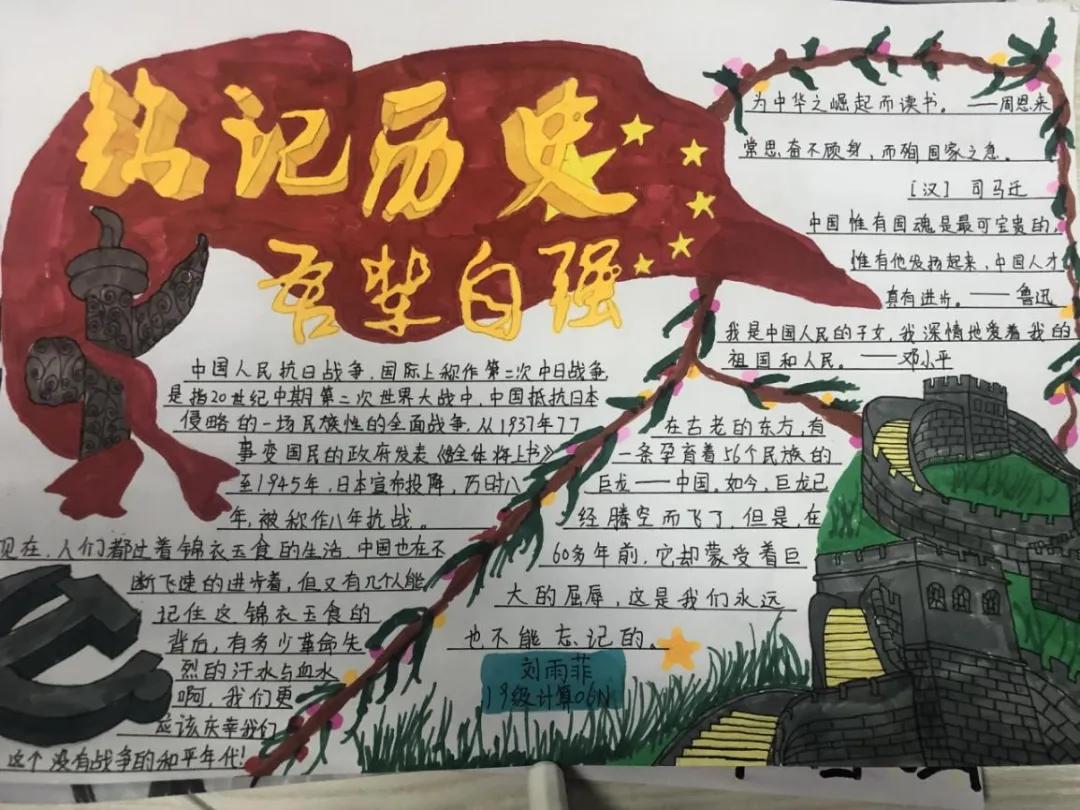 铭记历史
吾辈自强
为中华之崛起而读书。——周恩来
常思奋不顾身，而殉国家之急。
［汉］司马迁
中国惟有国魂是最可宝贵的，
惟有他发扬起来，中国人才
真有进步。——鲁迅
我是中国人民的子女，我深情地爱着我的
祖国和人民。——邓小平
中国人民抗日战争，国际上称作第二次中日战争
是指20世纪中期第二次世界大战中，中国抵抗日本
侵略的一场民族性的全面战争，从1937年77
事变国民的政府发表《全体将上书》
至1945年，日本宣布投降，历时八
年，被称作八年抗战。
现在，人们都过着锦衣玉食的生活，中国也在不
断飞速的进步着，但又有几个人能
记住这锦衣玉食的
背后，有多少革命先
烈的汗水与血水
啊，我们更
应该庆幸我们
这个没有战争的和平年代！
在古老的东方，有
一条孕育着56个民族的
巨龙——中国。如今，巨龙已
经腾空而飞了，但是，在
60多年前，它却蒙受着巨
大的屈辱，这是我们永远
也不能忘记的。
刘雨菲
19级计算06N